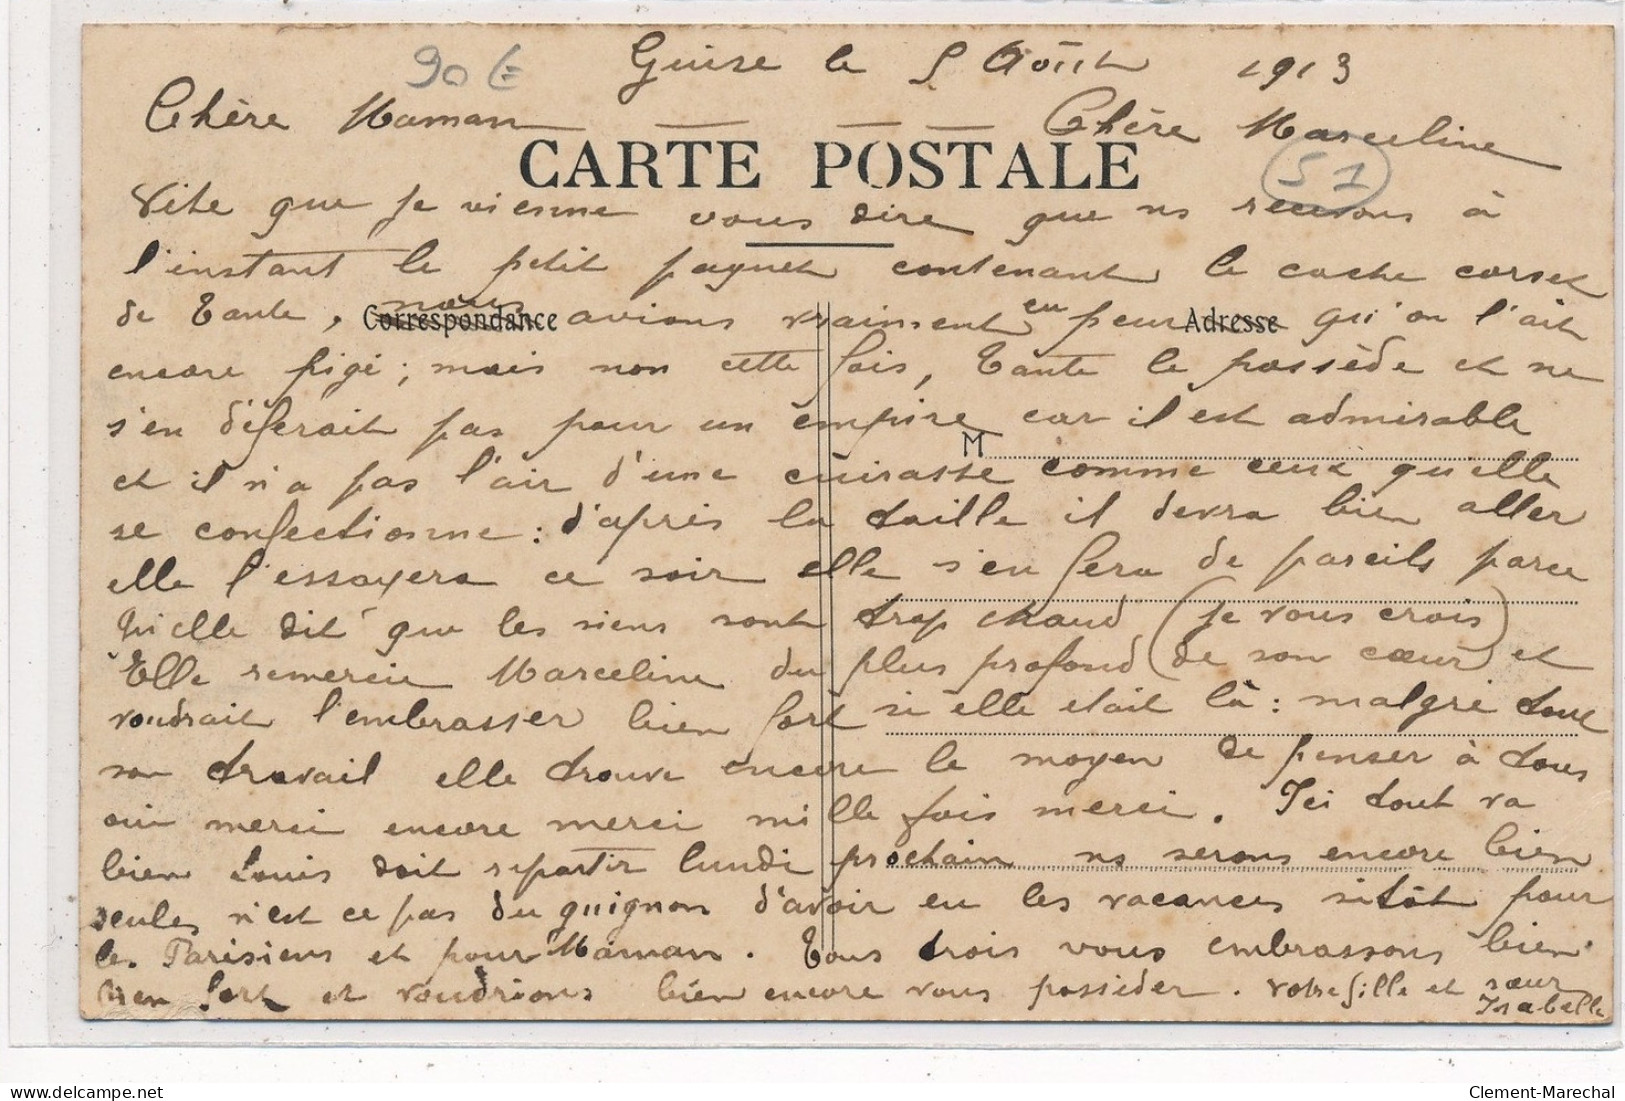 90 €
Guise le 5 Août 1913
Chère Maman Chère Marceline
CARTE POSTALE
51
Vite que je vienne vous dire que ns recevons à
l'instant le petit paquet contenant le cache corset
de Tante, nous avions vraiment eu peur qu'on l'ait
Correspondance Adresse
encore pigé; mais non cette fois, Tante le possède et ne
s'en déferait pas pour un empire car il est admirable
M
et il n'a pas l'air d'une cuirasse comme ceux qu'elle
se confectionne: d'après la taille il devra bien aller
elle l'essayera ce soir elle s'en fera de pareils parce
qu'elle dit que les siens sont trop chaud (je vous crois)
Elle remercie Marceline du plus profond (de son cœur) et
voudrait l'embrasser bien fort si elle etait là: malgré tout
son travail elle trouve encore le moyen de penser à tous
oui merci encore merci mille fois merci. Ici tout va
bien Louis doit repartir lundi prochain ns serons encore bien
seules n'est ce pas du guignon d'avoir eu les vacances sitôt pour
les Parisiens et pour Maman. Tous trois vous embrassons bien
bien fort et voudrions bien encore vous posséder. votre fille et sœur
Isabelle
delcampe.net
Clement-Marechal